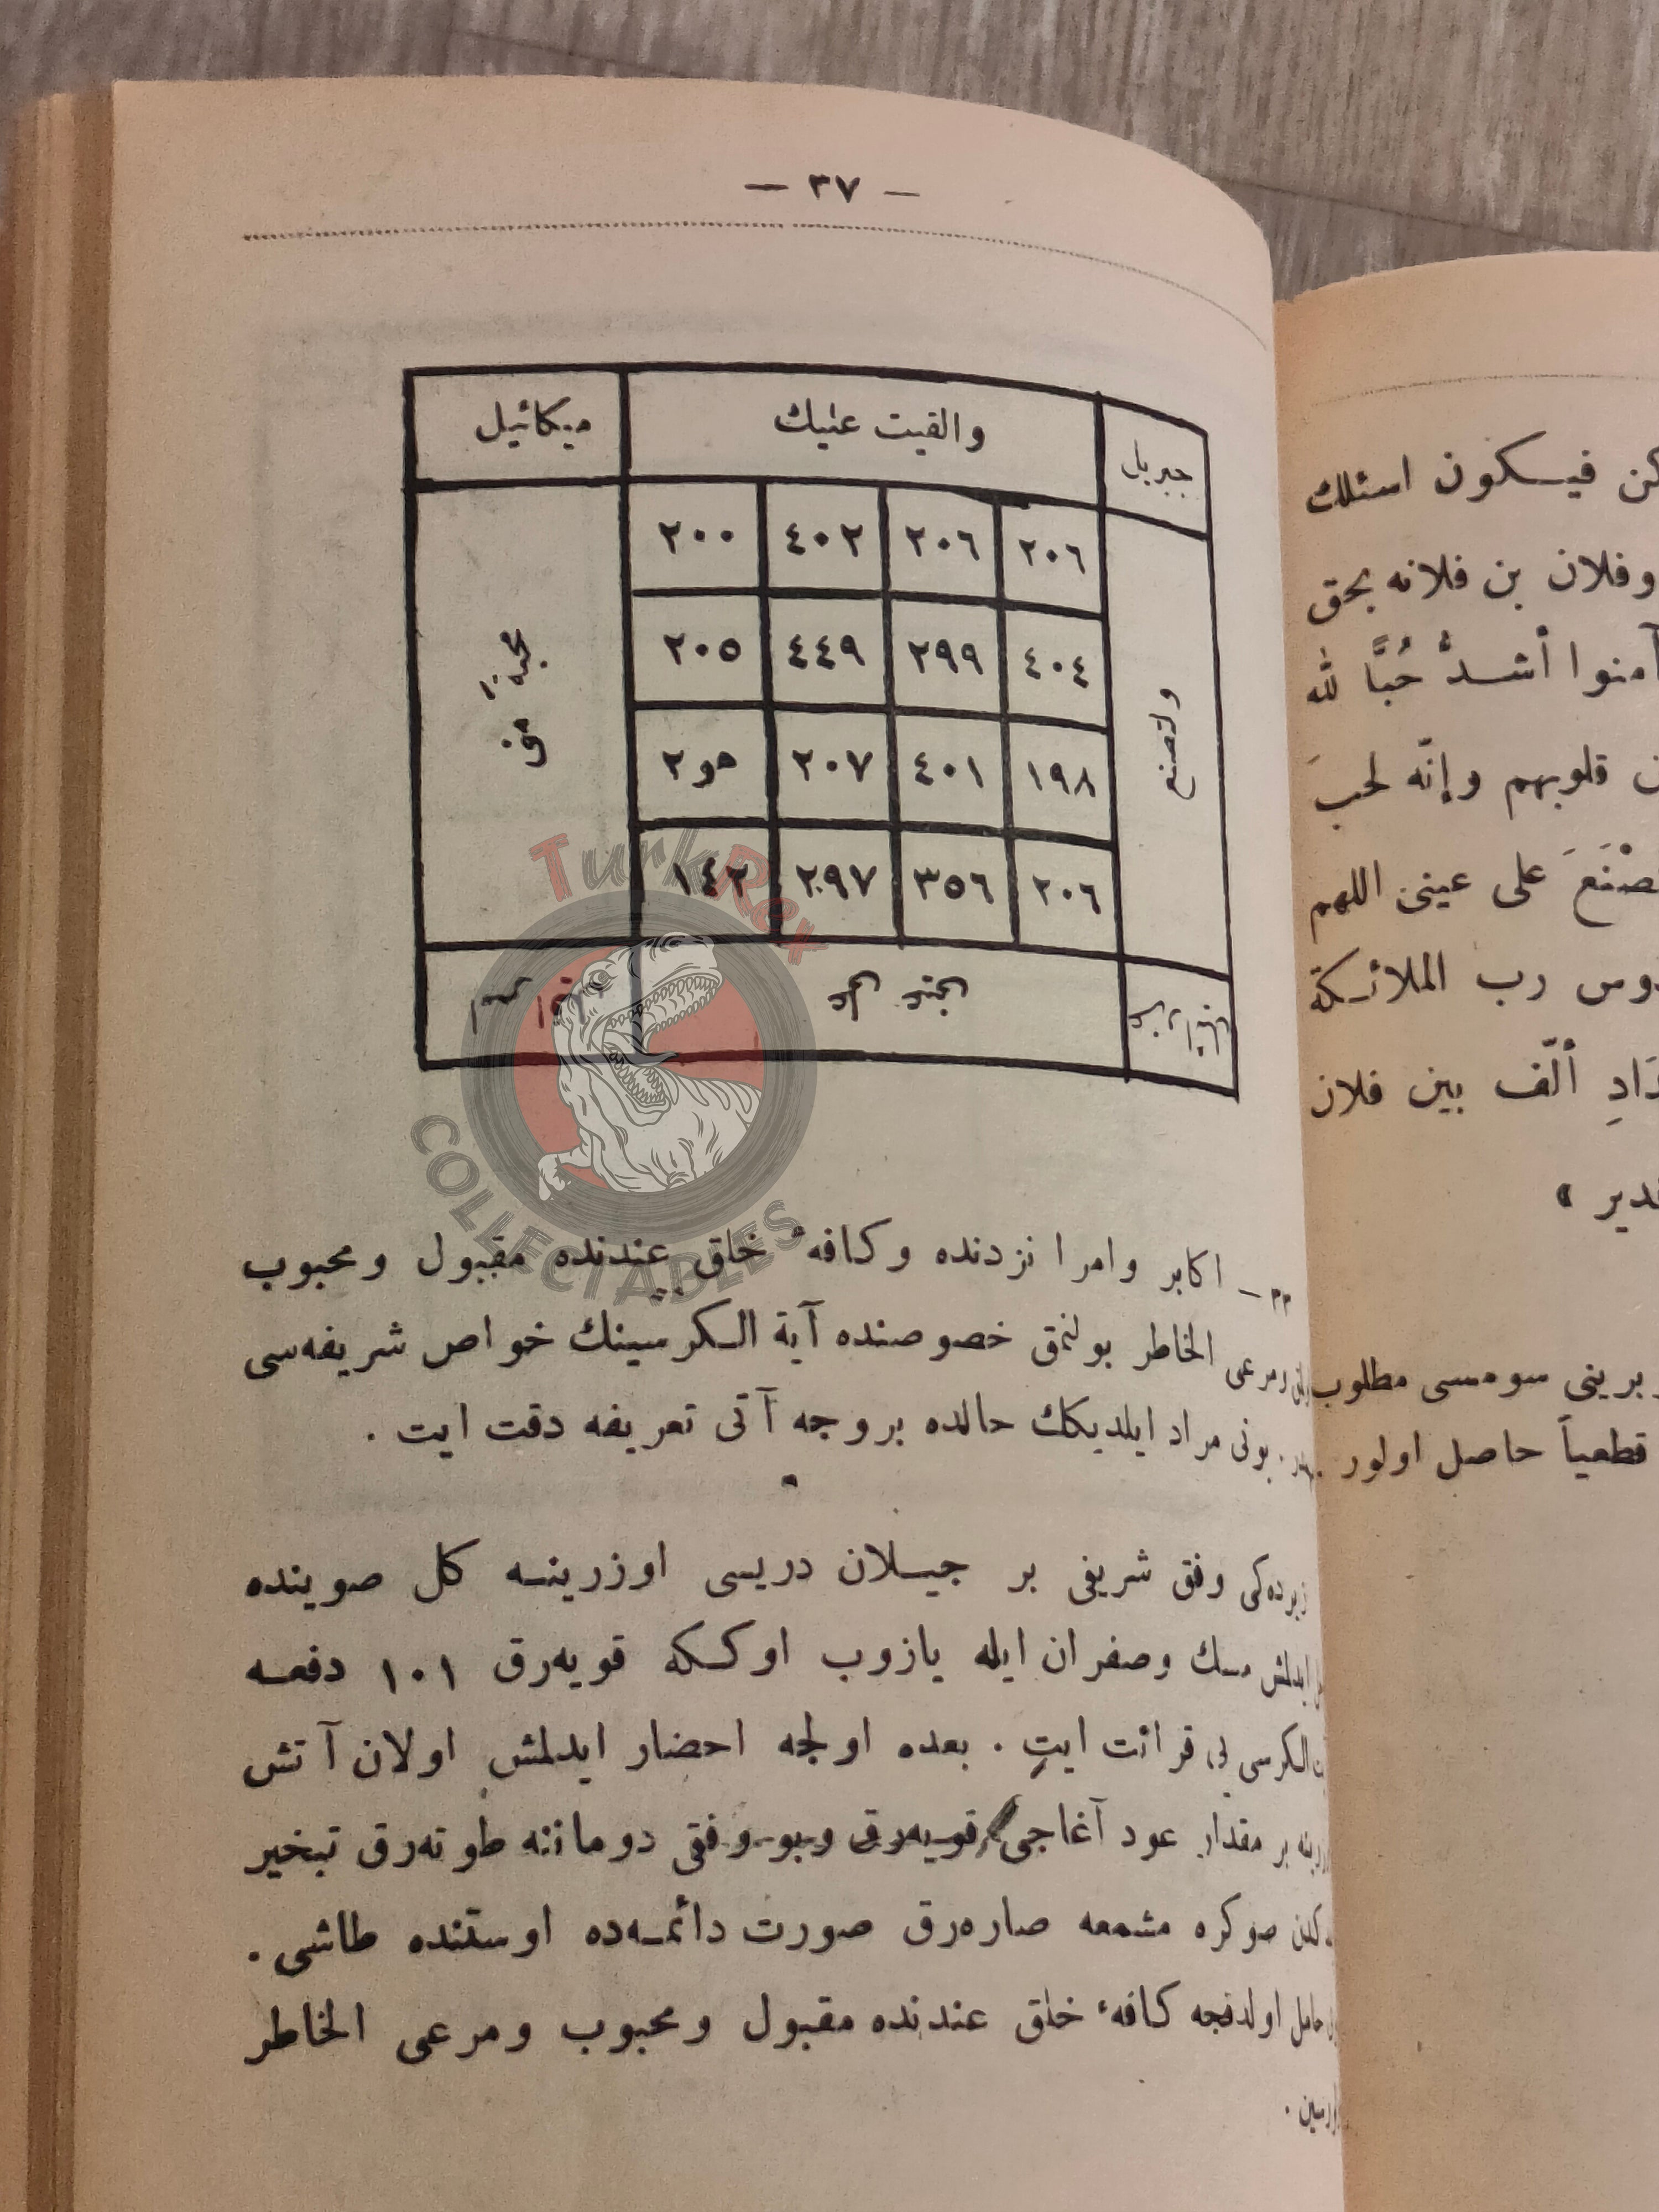 — ٣٧ —
جبريل والقيت عليك ميكائيل
٢٠٦ ٢٠٦ ٤٠٢ ٢٠٠
٤٠٤ ٢٩٩ ٤٤٩ ٢٠٥
ولتصنع
محبة منى
١٩٨ ٤٠١ ٢٠٧
٢٠٦ ٣٥٦ ٢٩٧ ١٤٢
TurkRex
COLLECTABLES
اكابر وامرا نزدنده وكافهٔ خلق عندنده مقبول ومحبوب
ومرعى الخاطر بولنمق خصوصنده آية الكرسينك خواص شريفه‌سى
بونى مراد ايلديكك حالده بروجه آتى تعريفه دقت ايت .
وفق شريفى بر جيلان دريسى اوزرينه كل صوينده
ايدلمش مسك وصفران ايله يازوب اوككه قويه‌رق ١٠١ دفعه
الكرسى يى قرائت ايت . بعده اولجه احضار ايدلمش اولان آتش
بر مقدار عود آغاجى قويه‌رق وبو وفقى دوماننه طوته‌رق تبخير
صوكره مشمعه صاره‌رق صورت دائمه‌ده اوستنده طاشى .
حامل اولدقجه كافهٔ خلق عندنده مقبول ومحبوب ومرعى الخاطر
كن فيكون اسئلك
وفلان بن فلانه بحق
آمنوا أشدُّ حُبًّا لله
قلوبهم وإنّه لحبَ
على عينى اللهم
رب الملائكة
ألّف بين فلان
برينى سومسى مطلوب
قطعياً حاصل اولور .